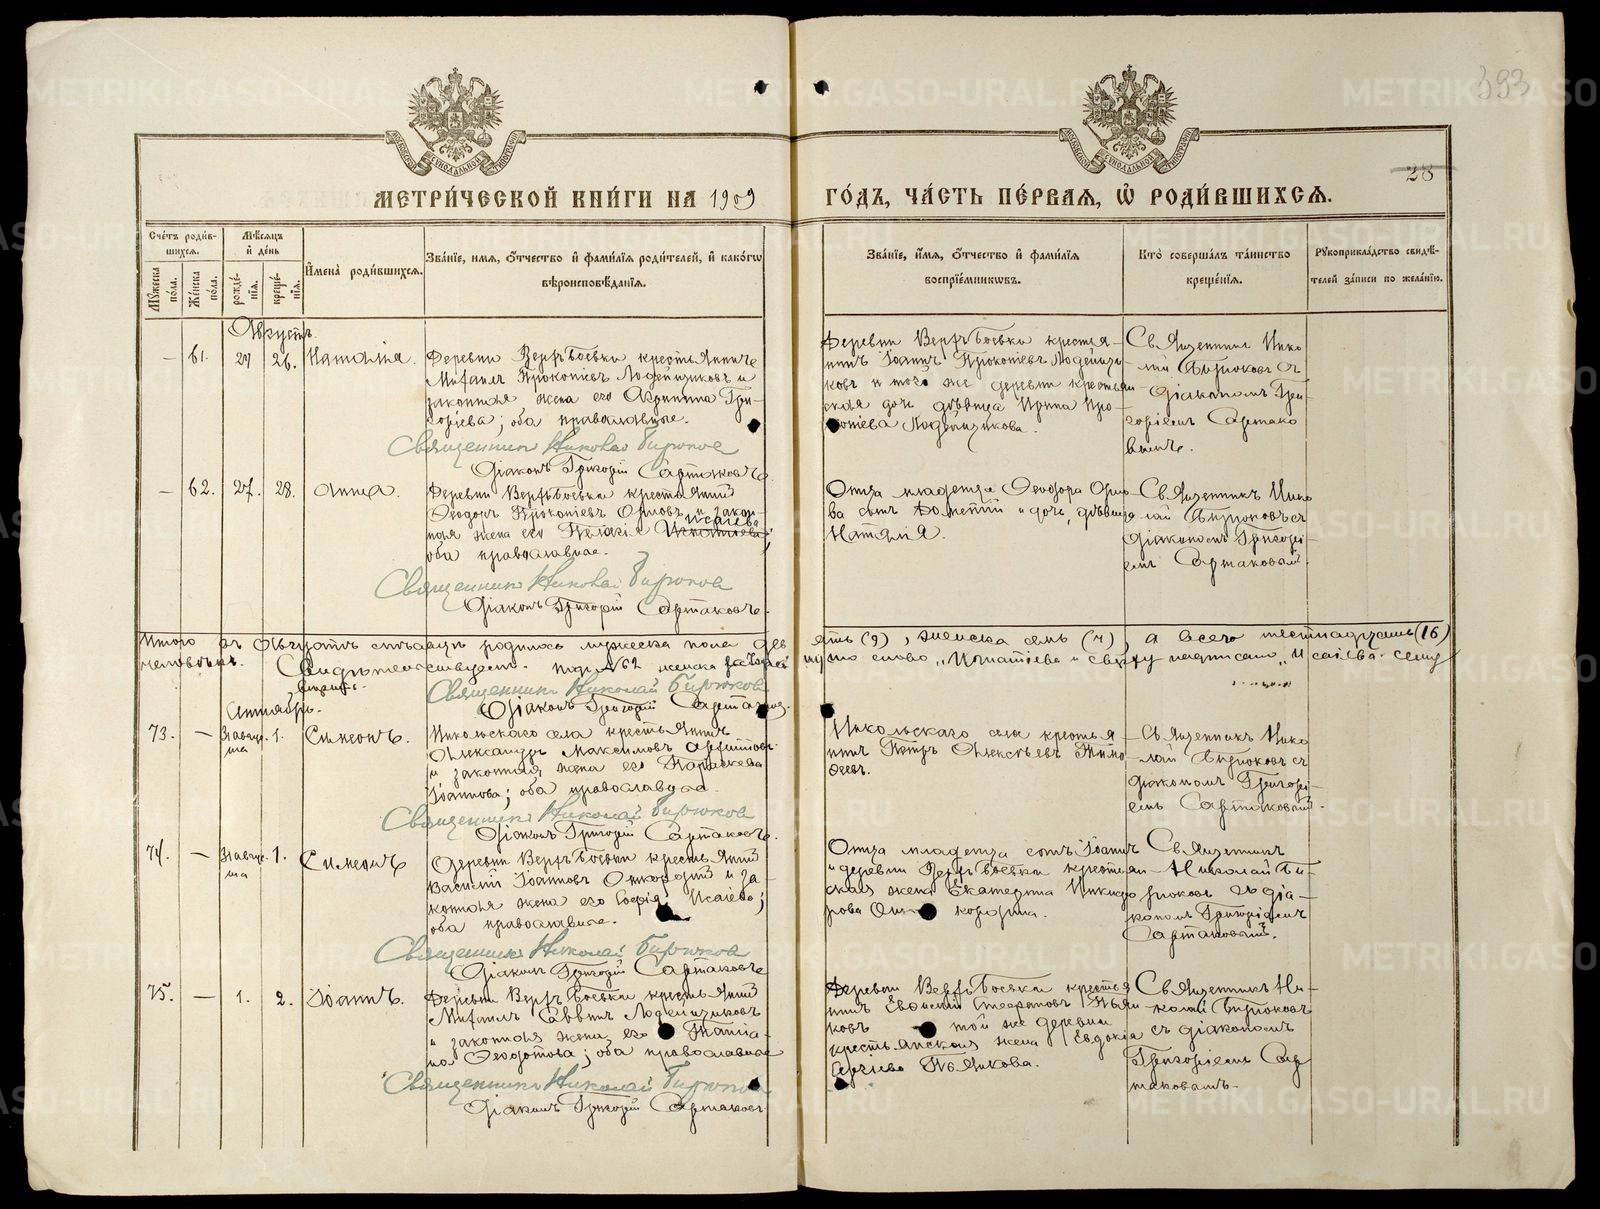 393
28
МЕТРИ́ЧЕСКОЙ КНИ́ГИ НА 1909
ГО́ДЪ, ЧА́СТЬ ПЕ́РВАЯ, Ѿ РОДИ́ВШИХСЯ.
Сче́тъ роди́в-
шихся.
Му́жеска
по́ла.
Же́нска
по́ла.
Мѣ́сяцъ
и҆ де́нь
рожде́-
нія.
креще́-
нія.
И҆мена̀ роди́вшихся.
Зва́ніе, имя, ѻ҆́тчество и҆ фами́лія роди́телей, и҆ како́гѡ
вѣроисповѣ́данія.
Зва́ніе, и҆́мя, ѻ҆́тчество и҆ фами́лія
воспріе́мниковъ.
Кто̀ соверша́лъ та́инство
креще́нія.
Рукоприкла́дство свидѣ́-
телей за́писи по жела́нію.
Августъ.
— 61. 27 28. Наталія.
Деревни Верхъ Боевки крестьянинъ
Михаилъ Прокопіевъ Лодейщиковъ и
законная жена его Агрипина Гри-
горіева; оба православные.
Священникъ Николай Бирюков
Діаконъ Григорій Сартаковъ
Деревни Верхъ Боевки крестья-
нинъ Іоаннъ Прокопіевъ Лодейщи-
ковъ и той же деревни крестьян-
ская дочь дѣвица Ирина Про-
копіева Лодейщикова.
Священникъ Нико-
лай Бирюковъ съ
діакономъ Гри-
горіемъ Сартако-
вымъ.
— 62. 27. 28. Анна.
Деревни Верхъ Боевки крестьянинъ
Ѳеодоръ Прокопіевъ Орловъ и закон-
Исаіева
ная жена его Пелагія Игнатіева;
оба православные.
Священникъ Николай Бирюков
Діаконъ Григорій Сартаковъ.
Отца младенца Ѳеодора Орло-
ва сынъ и дочь, дѣвица
Наталія.
Священникъ Нико-
лай Бирюковъ съ
діакономъ Григорі-
емъ Сартаковымъ.
Итого въ Августѣ мѣсяцѣ родилось мужеска пола дев
ять (9), женска семь (7), а всего шестнадцать (16)
человѣкъ.
слово „Игнатіева" сверху надписано „Исаіева"
Священникъ Николай Бирюков
Діаконъ Григорій Сартаков.
Сентябрь.
73. — 1. Симеонъ.
Никольскаго села крестьянинъ
Александръ Максимовъ
и законная жена его Параскева
Іоаннова; оба православные.
Священникъ Николай Бирюков
Діаконъ Григорій Сартаковъ.
Никольскаго села крестья-
нинъ Петръ Алексѣевъ Тимо-
ѳеевъ.
Священникъ Нико-
лай Бирюковъ съ
діакономъ Григорі-
емъ Сартаковымъ.
74. — 1. Симеонъ
Деревни Верхъ Боевки крестьянинъ
Василій Іоанновъ и за-
конная жена его Софія Исаіева;
оба православные.
Священникъ Николай Бирюков
Діаконъ Григорій Сартаковъ
Отца младенца сынъ Іоаннъ
и деревни Верхъ Боевки крестьян-
ская жена Екатерина Никифо-
рова
Священникъ
Николай Би-
рюковъ съ діа-
кономъ Григоріемъ
Сартаковымъ.
75. — 1. 2. Іоаннъ.
Деревни Верхъ Боевки крестьянинъ
Михаилъ Саввинъ Лодейщиковъ
и законная жена его Татіа-
на Ѳеодотова; оба православные
Священникъ Николай Бирюков
Діаконъ Григорій Сартаков
Деревни Верхъ Боевки крестья-
нинъ Евфимій Стефановъ Пьян-
ковъ той же деревни
крестьянская жена Евдокія
Пьянкова.
Священникъ Ни-
колай Бирюковъ
съ діакономъ
Григоріемъ Сар-
таковымъ.
METRIKI.GASO-URAL.RU